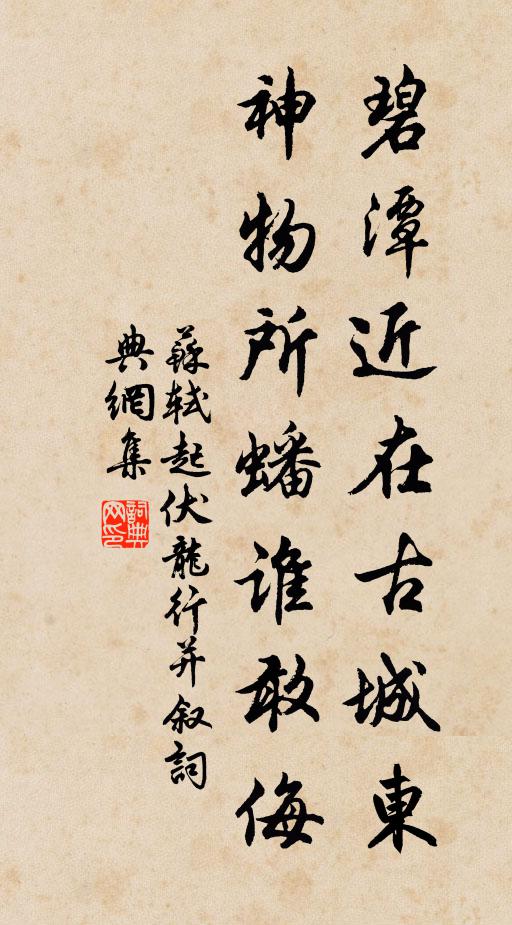 碧潭近在古城東
神物所蟠誰敢侮
蘇軾起伏龍行并叙詞
典網集
詞典网印